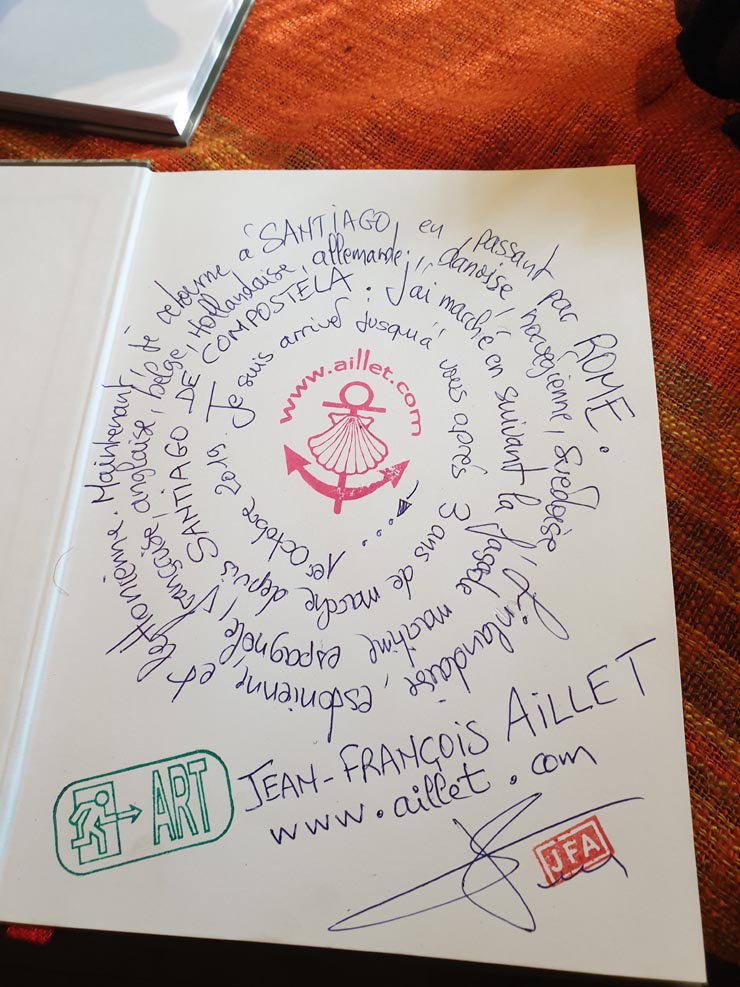 www.aillet.com
1er Octobre 2019. Je suis arrivé jusqu'à vous après 3 ans de marche depuis
SANTIAGO DE COMPOSTELA. J'ai marché en suivant la façade maritime espagnole,
française, anglaise, belge, Hollandaise, allemande, danoise, norvégienne, suédoise, finlandaise, estonienne et
lettonienne. Maintenant je retourne à SANTIAGO, en passant par ROME.
JEAN-FRANÇOIS AILLET
www.aillet.com
ART
JFA